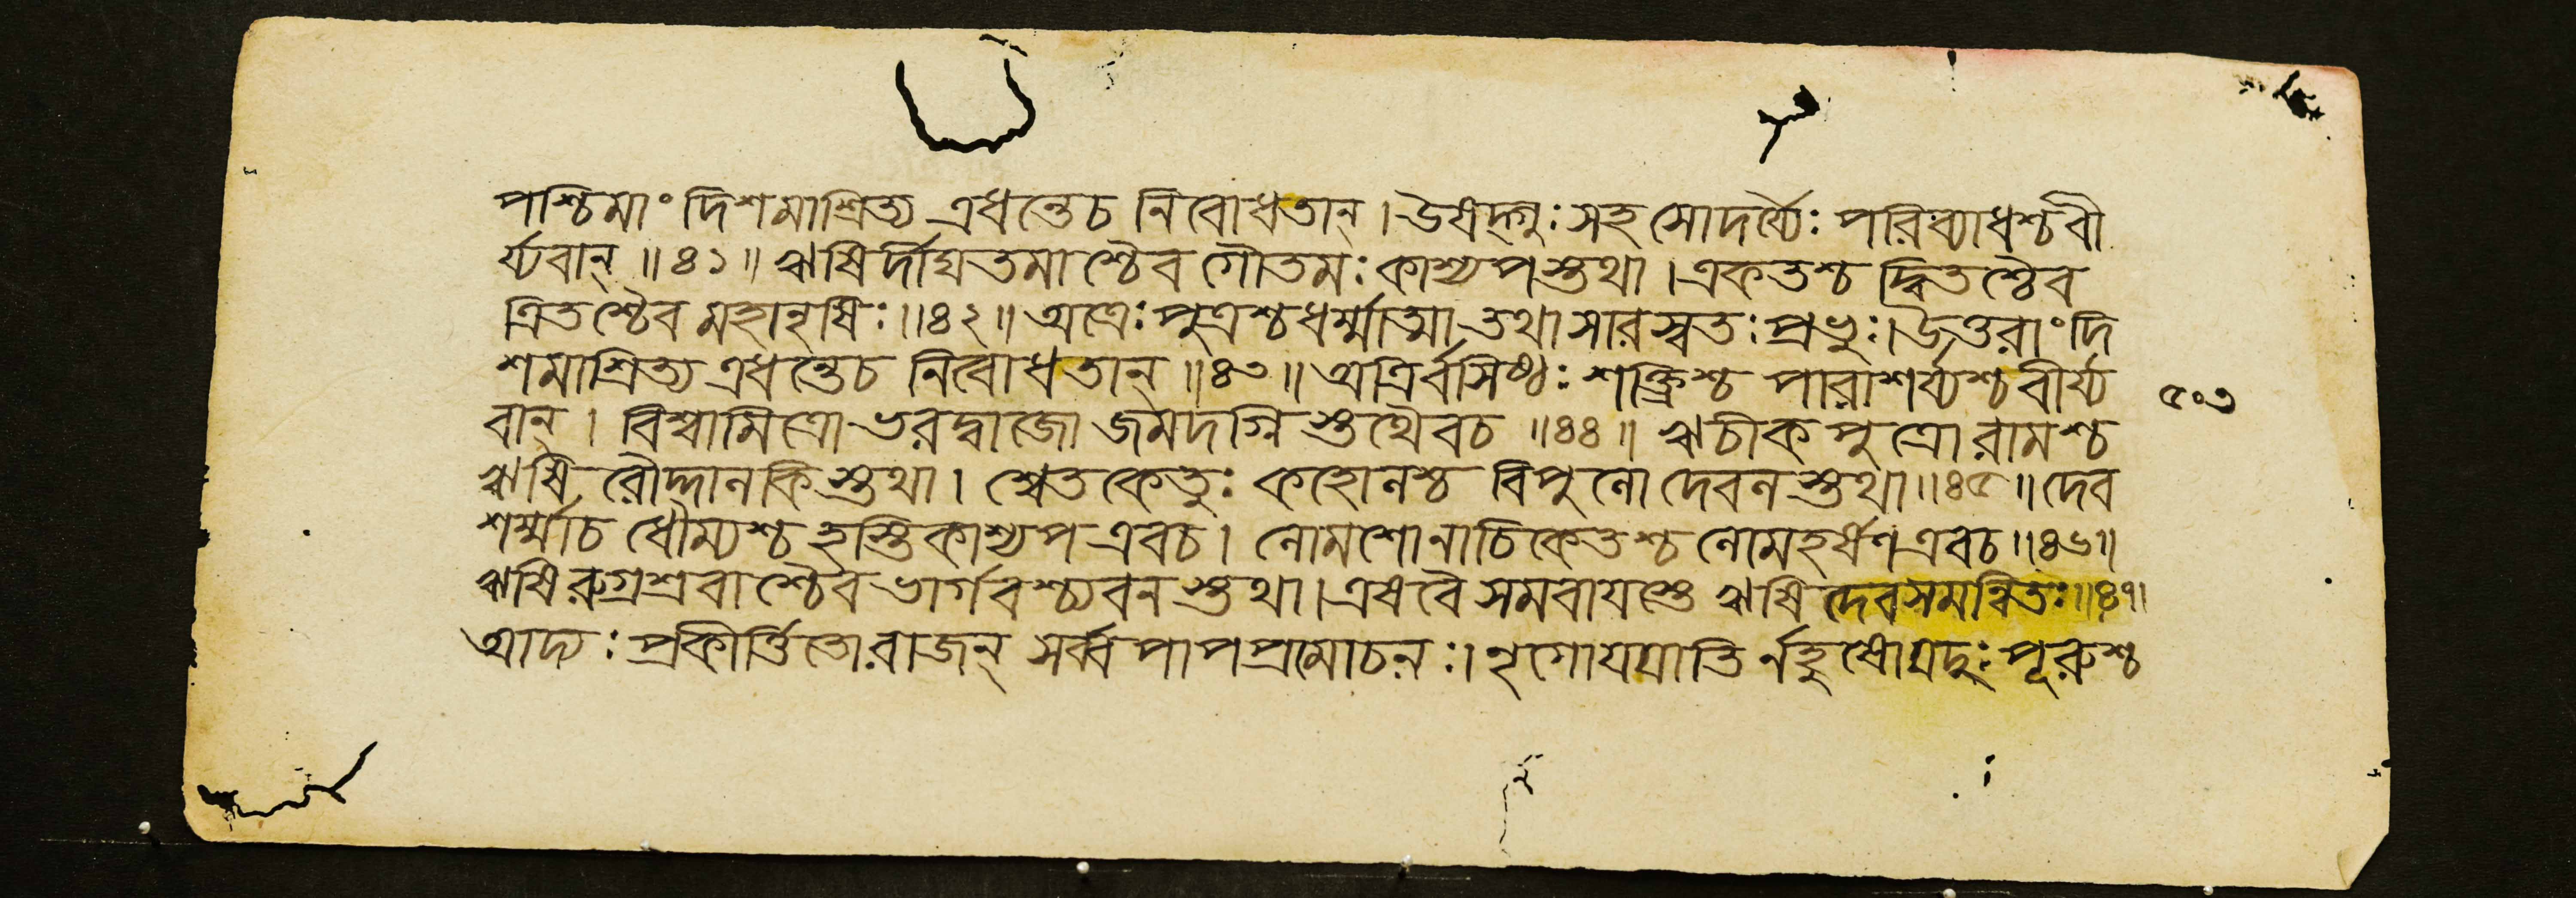 পশ্চিমাং দিশমাশ্রিত্য এধন্তেচ নিবোধতান্। উষদ্গুঃ সহ সোদর্য্যৈঃ পরিব্যাধশ্চবী
র্য্যবান্ ॥৪১॥ ঋষির্দীঘতমাশ্চৈব গৌতমঃ কাশ্যপস্তথা। একতশ্চ দ্বিতশ্চৈব
ত্রিতশ্চৈব মহানৃষিঃ॥৪২॥ অত্রেঃ পুত্রশ্চধর্ম্মাত্মা তথা সারস্বতঃ প্রভুঃ। উত্তরাং দি
শমাশ্রিত্য এধন্তেচ নিবোধতান্ ॥৪৩॥ অত্রির্বসিষ্ঠঃ শক্ত্রিশ্চ পারাশর্য্যশ্চ বীর্য্য
বান্। বিশ্বামিত্রো ভরদ্বাজো জমদগ্নিস্তথৈবচ ॥৪৪॥ ঋচীকপুত্রো রামশ্চ
ঋষিরৌদ্দালকিস্তথা। শ্বেতকেতুঃ কহোলশ্চ বিপুলো দেবলস্তথা॥৪৫॥ দেব
শর্ম্মাচ ধৌম্যশ্চ হস্তিকাশ্যপ এবচ। লোমশোনাচিকেতশ্চ লোমহর্ষণ এবচ॥৪৬॥
ঋষিরুগ্রশ্রবাশ্চৈব ভার্গবশ্চ্যবনস্তথা। এষবৈ সমবাযস্তে ঋষিদেবসমন্বিতঃ॥৪৭॥
আদ্যঃ প্রকীর্ত্তিতোরাজন্ সর্ব্বপাপপ্রমোচনঃ। নৃগোযযাতির্নহুষোযদুঃ পূরুশ্চ
৫০৩